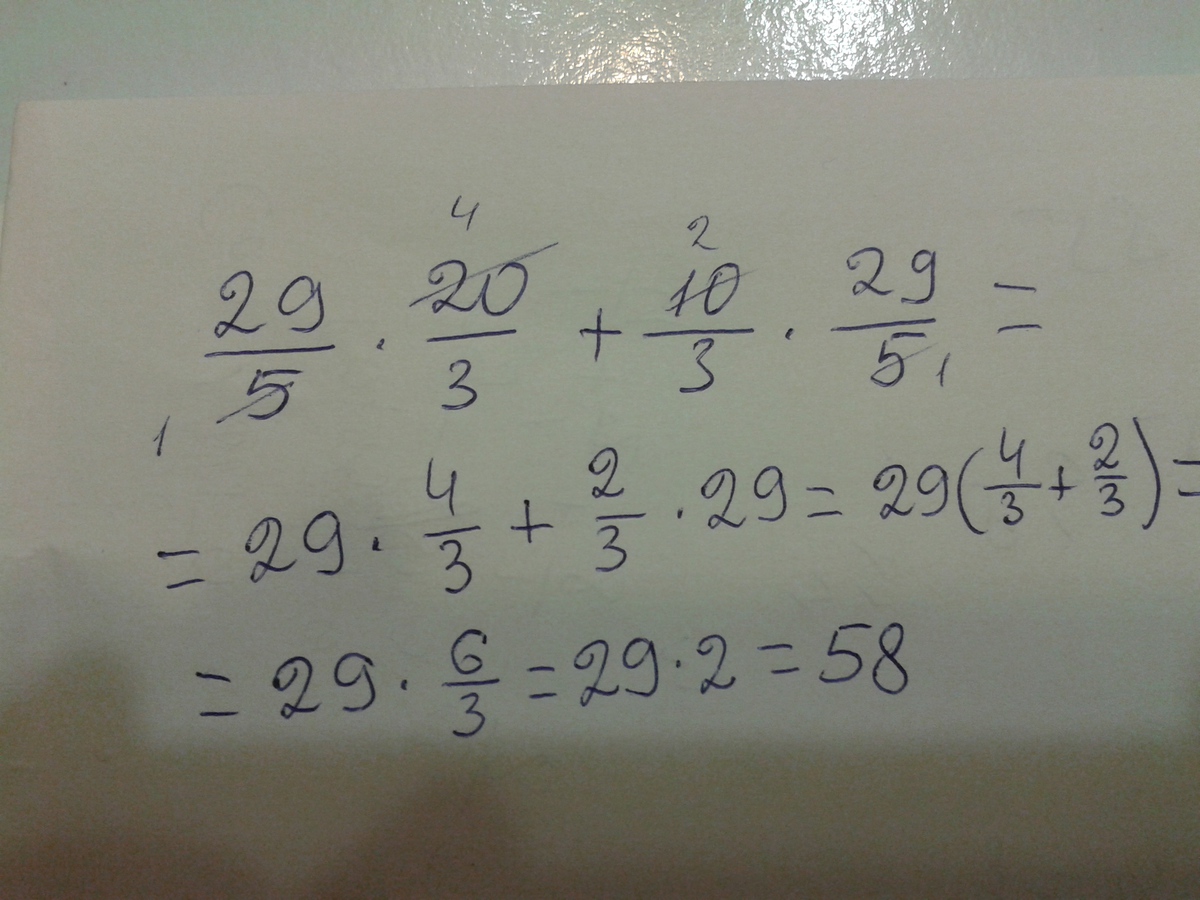 29/5 · 20/3 + 10/3 · 29/5 =
4 2 1 1
= 29 · 4/3 + 2/3 · 29 = 29(4/3 + 2/3) =
= 29 · 6/3 = 29 · 2 = 58